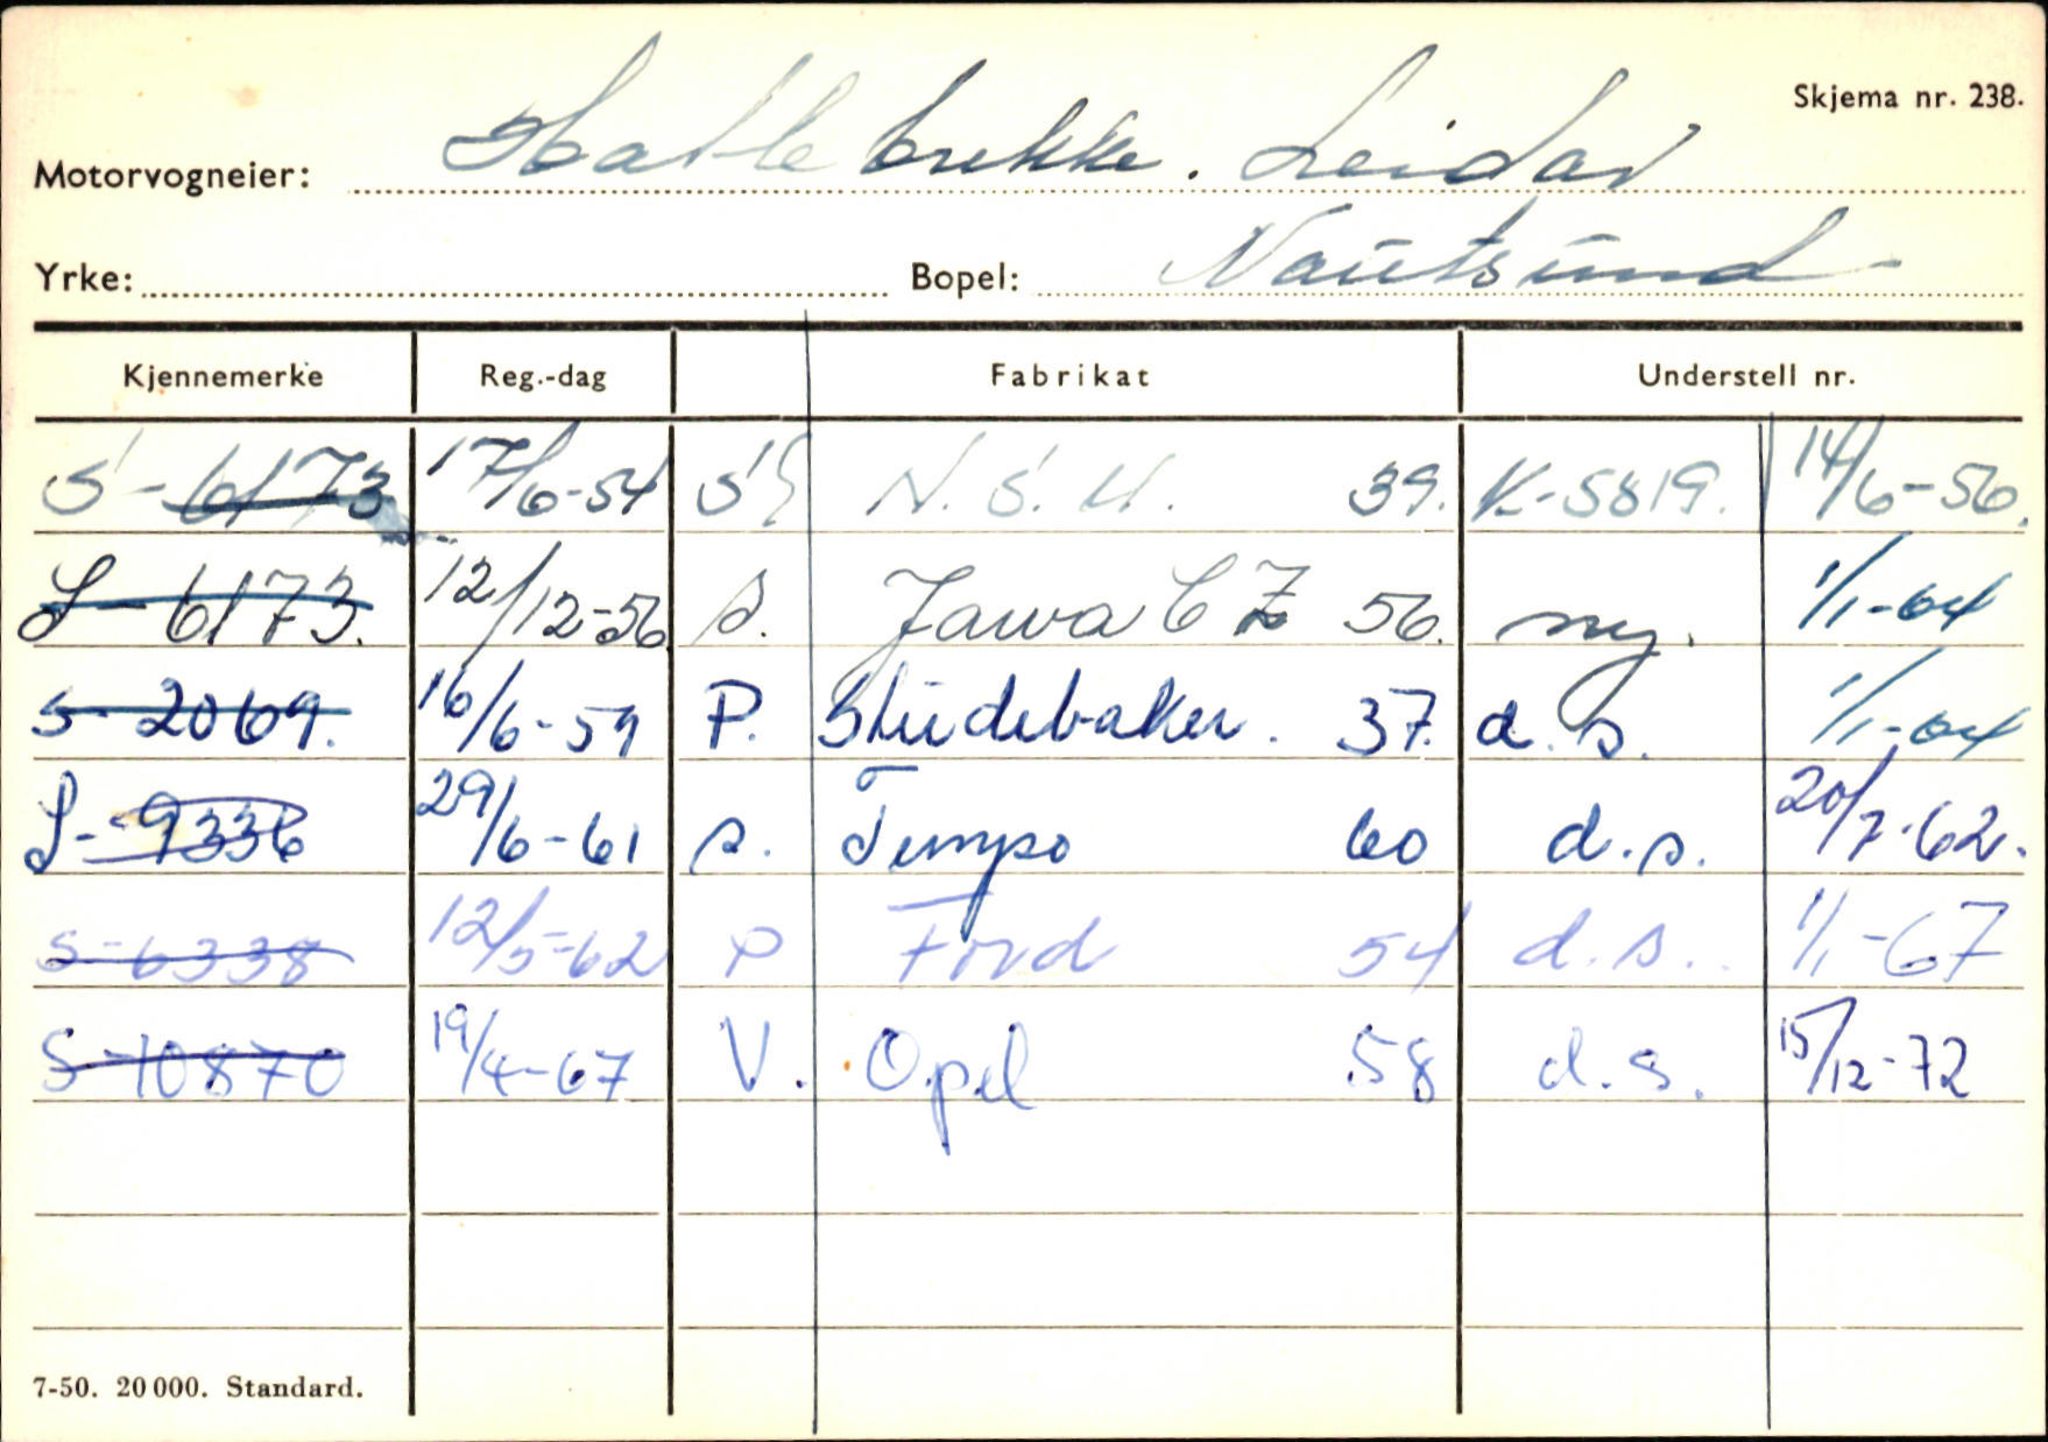 Skjema nr. 238.
Motorvogneier: Hatlebrekke. Leidar
Yrke: Bopel: Nautsund
Kjennemerke Reg.-dag Fabrikat Understell nr.
S-6173 17/6-54 N.S.U. 39. K-5819. 14/6-56.
S-6173. 12/12-56 s. Jawa CZ 56. ny. 1/1-64
S-2069. 16/6-59 P. Studebaker. 37. d.s. 1/1-64
S-9336 29/6-61 s. Tempo 60 d.s. 20/7-62.
S-6338 12/5-62 P Ford 54 d.s. 1/1-67
S-10870 19/4-67 V. Opel 58 d.s. 15/12-72
7-50. 20 000. Standard.